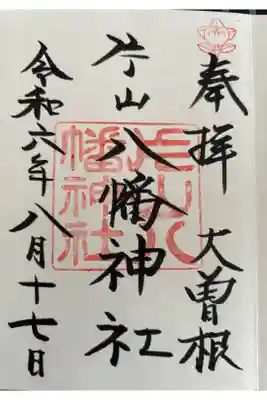 奉拝 大曽根
片山八幡神社
片山八幡神社
令和六年八月十七日